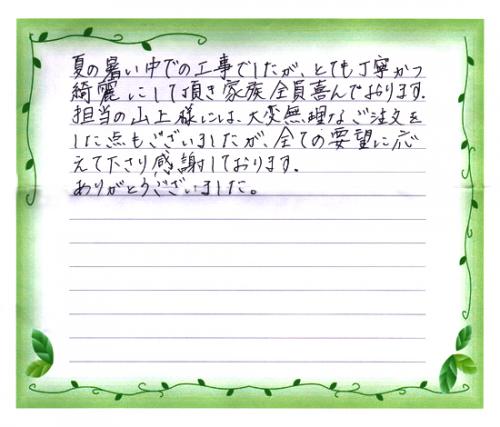 夏の暑い中での工事でしたが、とても丁寧かつ
綺麗にして頂き家族全員喜んでおります。
担当の山上様には、大変無理なご注文を
した点もございましたが、全ての要望に応
えて下さり感謝しております。
ありがとうございました。